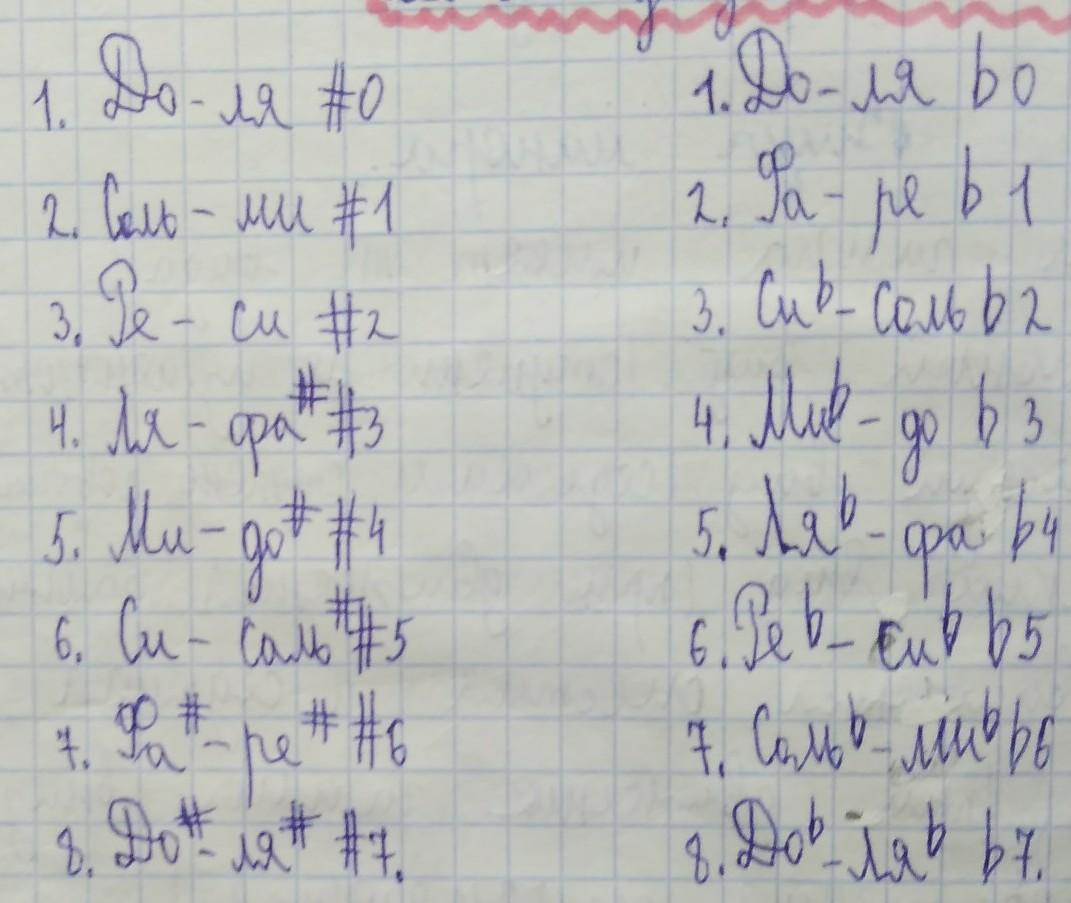 1. До - ля #0
2. Соль - ми #1
3. Ре - си #2
4. Ля - фа# #3
5. Ми - до# #4
6. Си - соль# #5
7. Фа# - ре# #6
8. До# - ля# #7.
1. До - ля b0
2. Фа - ре b1
3. Сиb - соль b2
4. Миb - до b3
5. Ляb - фа b4
6. Реb - сиb b5
7. Сольb - миb b6
8. Доb - ляb b7.